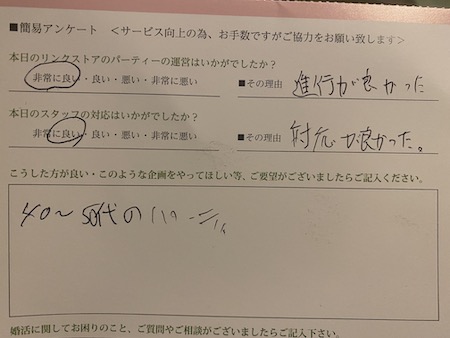 ■簡易アンケート ＜サービス向上の為、お手数ですがご協力をお願い致します＞
本日のリンクストアのパーティーの運営はいかがでしたか？
非常に良い・良い・悪い・非常に悪い ■その理由 進行が良かった
本日のスタッフの対応はいかがでしたか？
非常に良い・良い・悪い・非常に悪い ■その理由 対応が良かった。
こうした方が良い・このような企画をやってほしい等、ご要望がございましたらご記入ください。
40～50代の
婚活に関してお困りのこと、ご質問やご相談がございましたらご記入下さい。